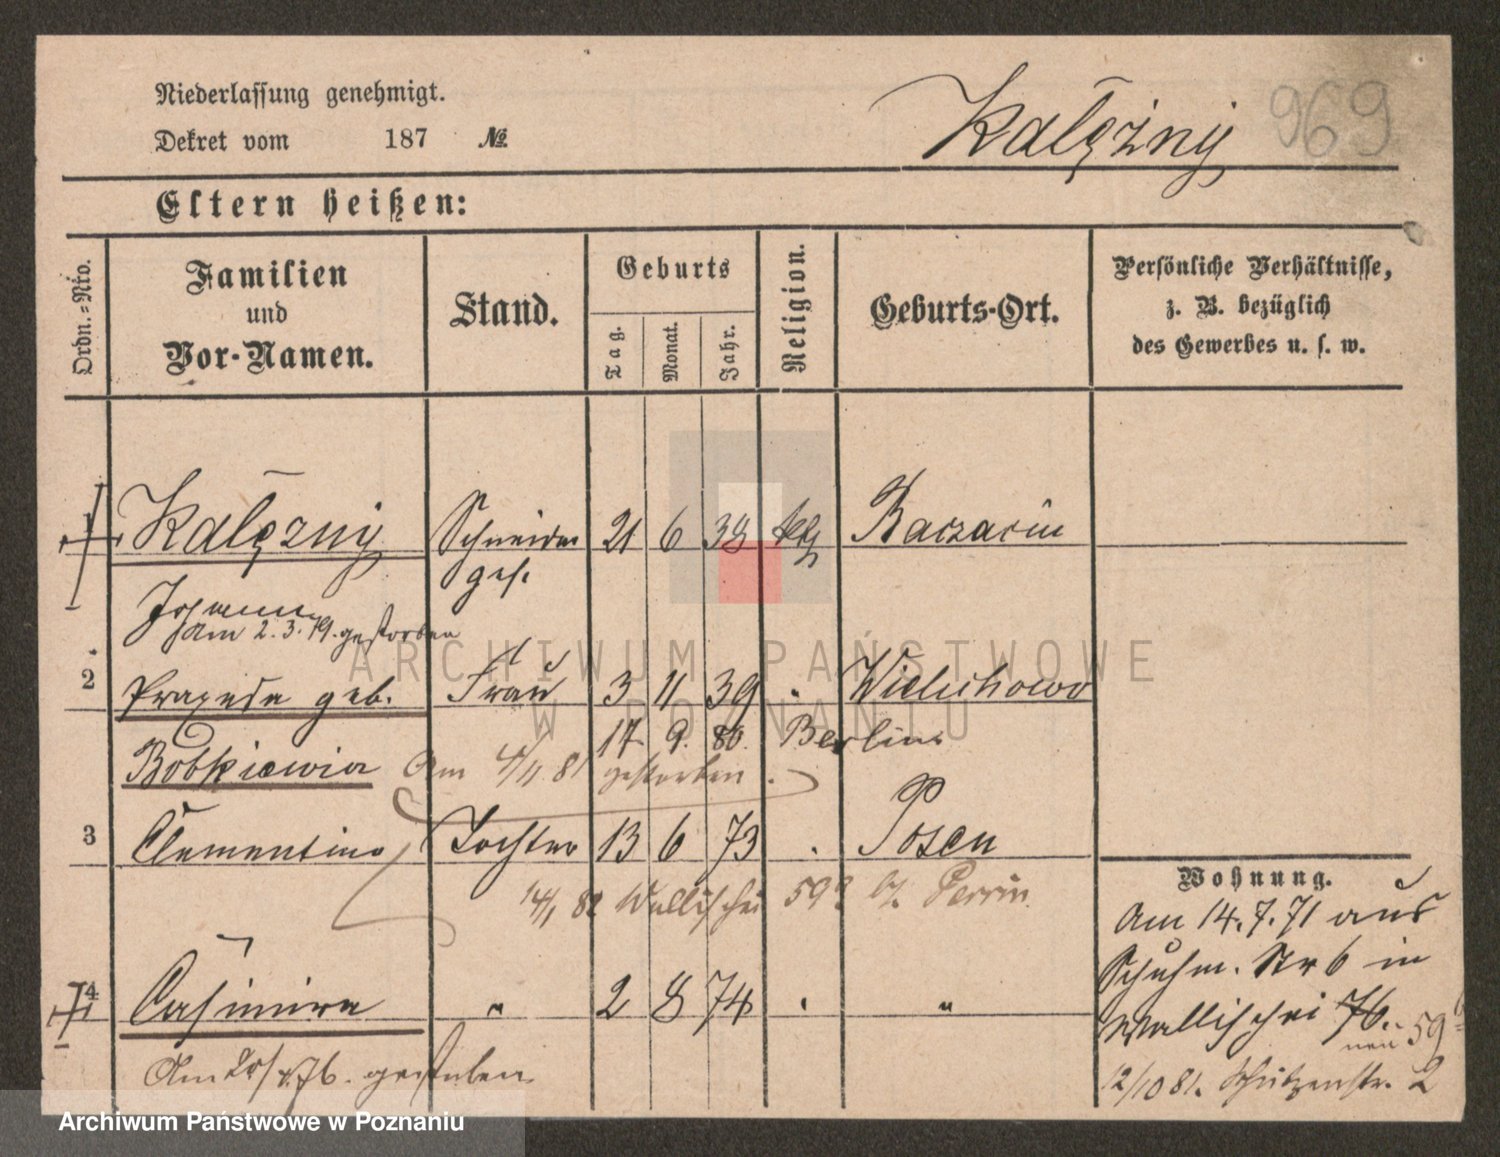 Niederlassung genehmigt.
Dekret vom 187 №
Kalężny 969
Eltern heißen:
Ordn.=Nro.
Familien
und
Vor-Namen.
Stand.
Geburts
Tag.
Monat.
Jahr.
Religion.
Geburts-Ort.
Persönliche Verhältnisse,
z. B. bezüglich
des Gewerbes u. s. w.
1 Kalężny Schneider 21 6 38 ktl
ges.
Johann
am 2.3.79. gestorben
ARCHIWUM PAŃSTWOWE
W POZNANIU
2 Praxeda geb. Frau 3 11 39 " Wielichowo
17. 9. 80. Berlin
Bobkiewicz Am 4/11.81 gestorben.
3 Clementine Tochter 13 6 73 " Posen
14/1 82 Wallischei 59 b/. Perrin.
4 Casimira " 2 8 74 " "
Am 76. gestorben
Wohnung.
Am 14.7.71 aus
Schuhm. Str 6 in
Wallischei 76.
neu 59
12/10 81. Schützenstr. 2
Archiwum Państwowe w Poznaniu